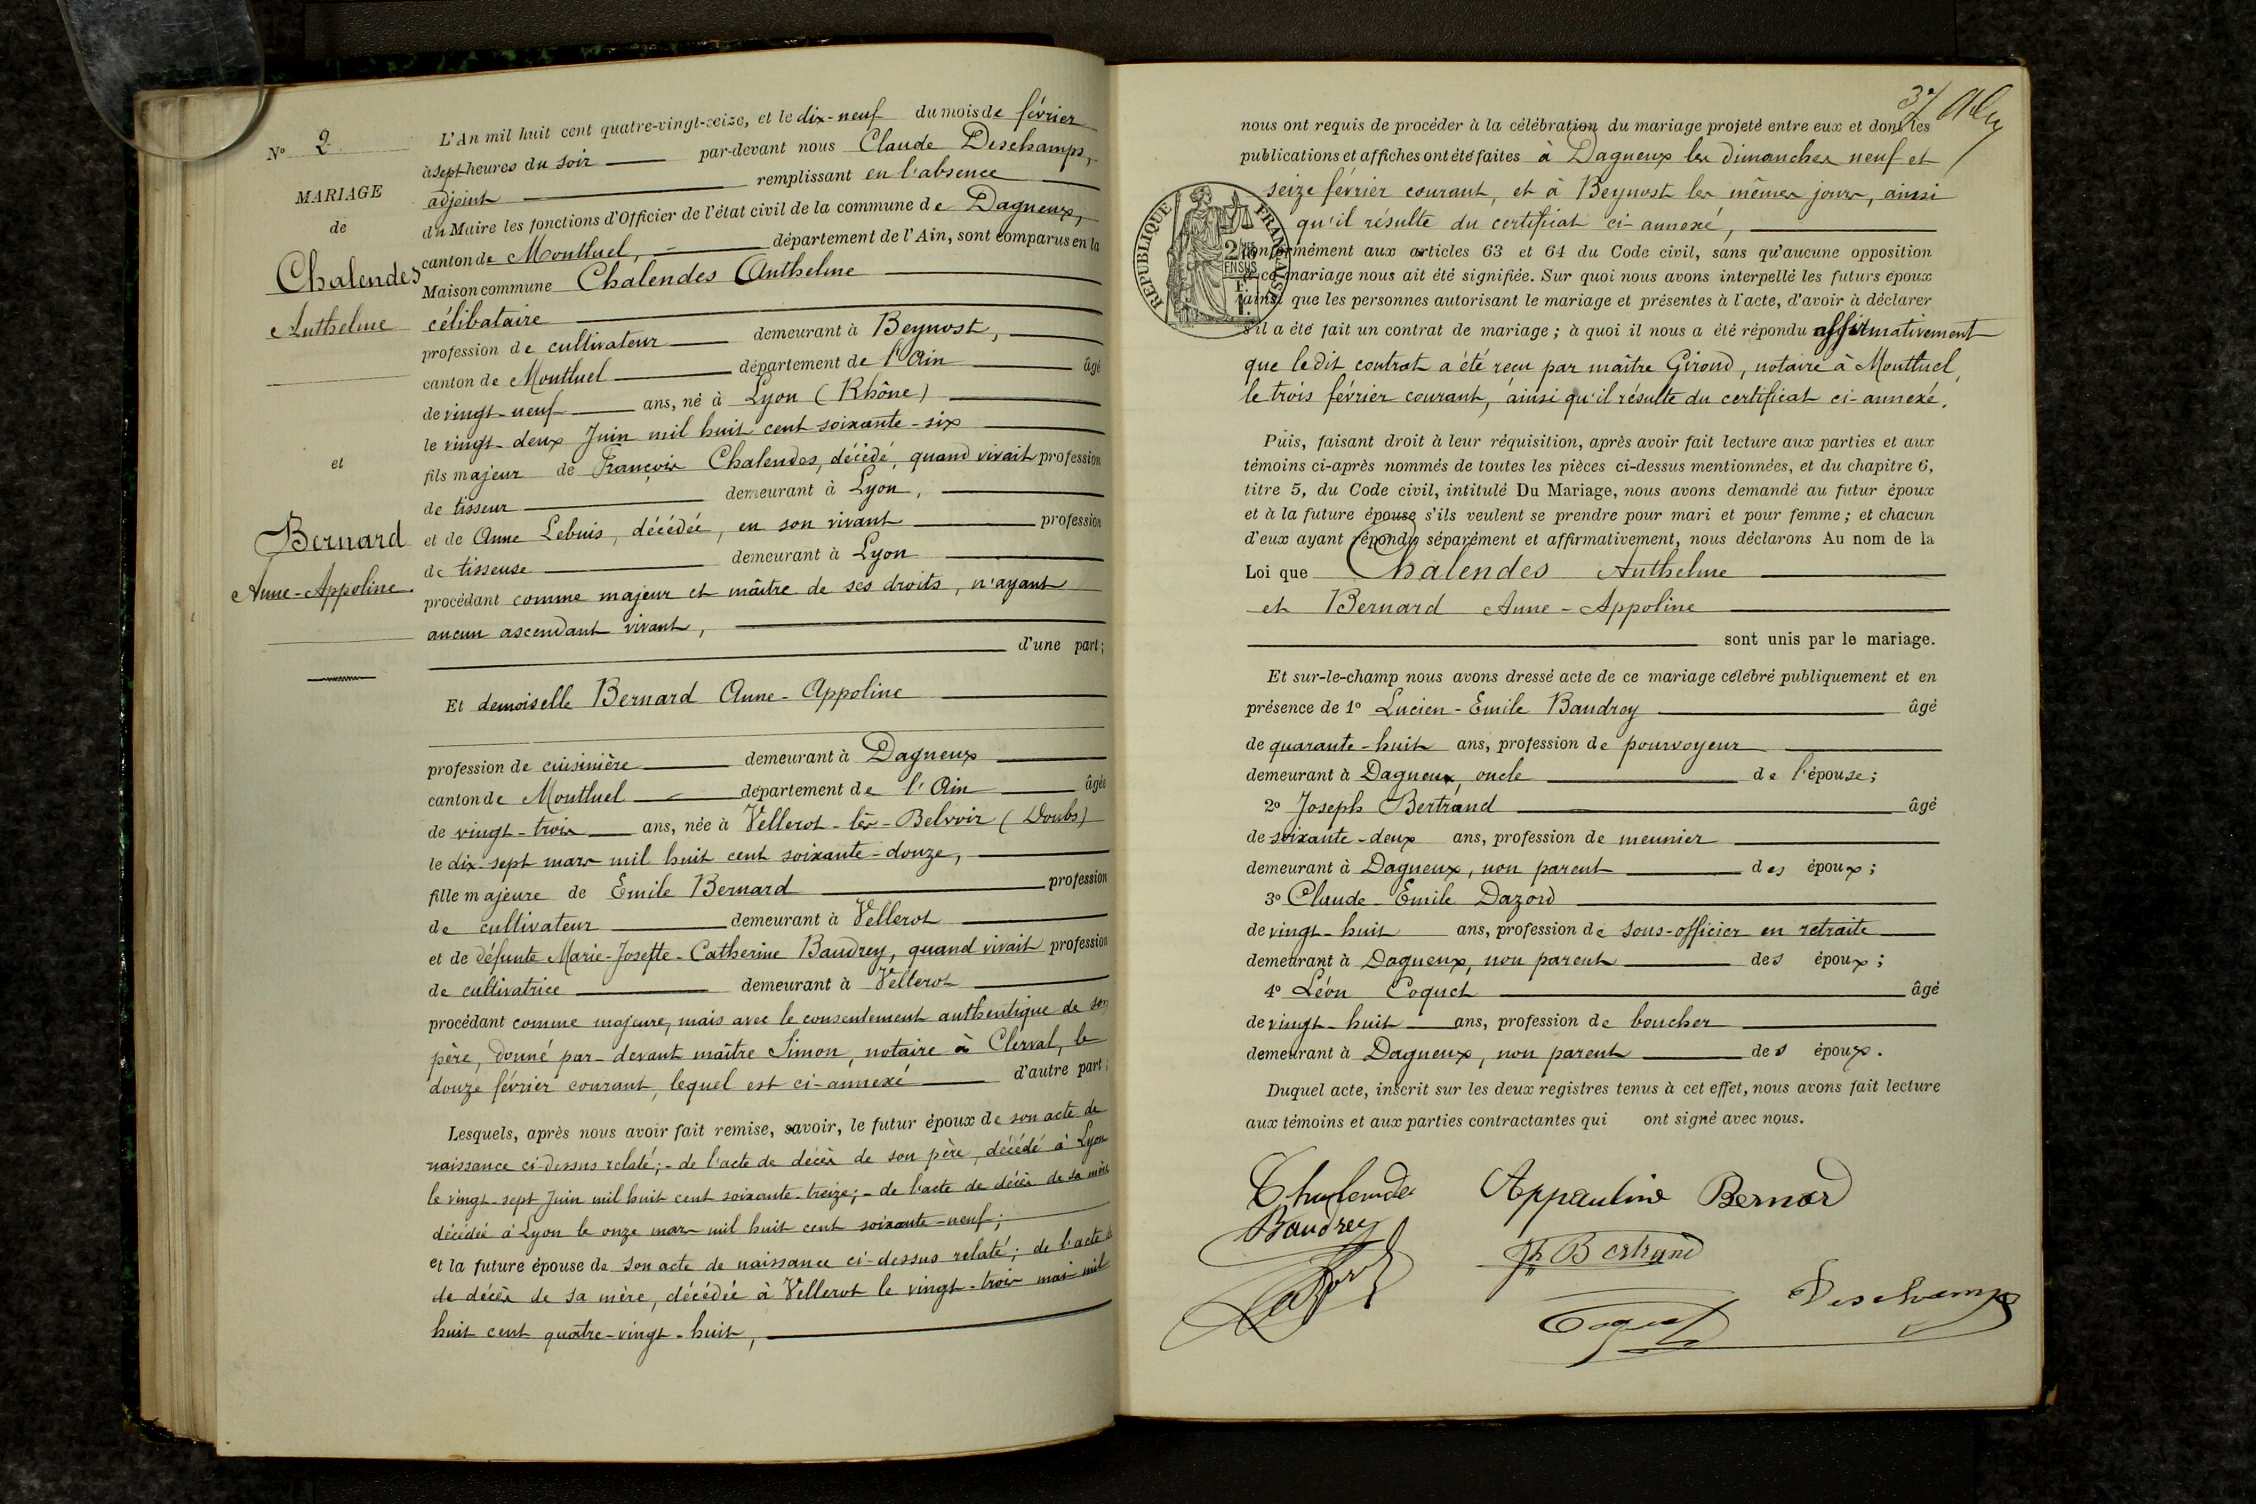 N° 2
MARIAGE
de
Chalendes
Anthelme
et
Bernard
Anne-Appoline
L'An mil huit cent quatre-vingt-seize, et le dix-neuf du mois de février
à sept heures du soir par-devant nous Claude Deschamps,
adjoint remplissant en l'absence
du Maire les fonctions d'Officier de l'état civil de la commune de Dagneux,
canton de Montluel, département de l'Ain, sont comparus en la
Maison commune Chalendes Anthelme
célibataire
profession de cultivateur demeurant à Beynost,
canton de Montluel département de l'Ain âgé
de vingt-neuf ans, né à Lyon (Rhône)
le vingt-deux Juin mil huit cent soixante-six
fils majeur de François Chalendes, décédé, quand vivait profession
de tisseur demeurant à Lyon,
et de Anne Lebuis, décédée, en son vivant profession
de tisseuse demeurant à Lyon
procédant comme majeur et maître de ses droits, n'ayant
aucun ascendant vivant,
d'une part;
Et demoiselle Bernard Anne-Appoline
profession de cuisinière demeurant à Dagneux
canton de Montluel département de l'Ain âgée
de vingt-trois ans, née à Vellerot-lès-Belvoir (Doubs)
le dix-sept mars mil huit cent soixante-douze,
fille majeure de Emile Bernard profession
de cultivateur demeurant à Vellerot
et de défunte Marie-Josefte-Catherine Baudrey, quand vivait profession
de cultivatrice demeurant à Vellerot
procédant comme majeure, mais avec le consentement authentique de son
père, donné par-devant maître Simon, notaire à Clerval, le
douze février courant, lequel est ci-annexé d'autre part;
Lesquels, après nous avoir fait remise, savoir, le futur époux de son acte de
naissance ci-dessus relaté;- de l'acte de décès de son père, décédé à Lyon
le vingt-sept Juin mil huit cent soixante-treize;- de l'acte de décès de sa mère
décédée à Lyon le onze mars mil huit cent soixante-neuf;
et la future épouse de son acte de naissance ci-dessus relaté; de l'acte de
de décès de sa mère, décédée à Vellerot le vingt-trois mai mil
huit cent quatre-vingt-huit,
37
nous ont requis de procéder à la célébration du mariage projeté entre eux et dont les
publications et affiches ont été faites à Dagneux les dimanches neuf et
seize février courant, et à Beynost les mêmes jours, ainsi
qu'il résulte du certificat ci-annexé,
REPUBLIQUE FRANÇAISE
conformément aux articles 63 et 64 du Code civil, sans qu'aucune opposition
à ce mariage nous ait été signifiée. Sur quoi nous avons interpellé les futurs époux
ainsi que les personnes autorisant le mariage et présentes à l'acte, d'avoir à déclarer
s'il a été fait un contrat de mariage; à quoi il nous a été répondu affirmativement
que le dit contrat a été reçu par maître Giroud, notaire à Montluel,
le trois février courant, ainsi qu'il résulte du certificat ci-annexé.
Puis, faisant droit à leur réquisition, après avoir fait lecture aux parties et aux
témoins ci-après nommés de toutes les pièces ci-dessus mentionnées, et du chapitre 6,
titre 5, du Code civil, intitulé Du Mariage, nous avons demandé au futur époux
et à la future épouse s'ils veulent se prendre pour mari et pour femme; et chacun
d'eux ayant répondu séparément et affirmativement, nous déclarons Au nom de la
Loi que Chalendes Anthelme
et Bernard Anne-Appoline
sont unis par le mariage.
Et sur-le-champ nous avons dressé acte de ce mariage célébré publiquement et en
présence de 1° Lucien-Emile Baudrey âgé
de quarante-huit ans, profession de pourvoyeur
demeurant à Dagneux, oncle de l'épouse;
2° Joseph Bertrand âgé
de soixante-deux ans, profession de meunier
demeurant à Dagneux, non parent des époux;
3° Claude-Emile Dazord
de vingt-huit ans, profession de sous-officier en retraite
demeurant à Dagneux, non parent des époux;
4° Léon Coquet âgé
de vingt-huit ans, profession de boucher
demeurant à Dagneux, non parent des époux.
Duquel acte, inscrit sur les deux registres tenus à cet effet, nous avons fait lecture
aux témoins et aux parties contractantes qui ont signé avec nous.
Chalendes Appauline Bernard
Baudrey
Jh Bertrand
Dazord
Coquet Deschamps